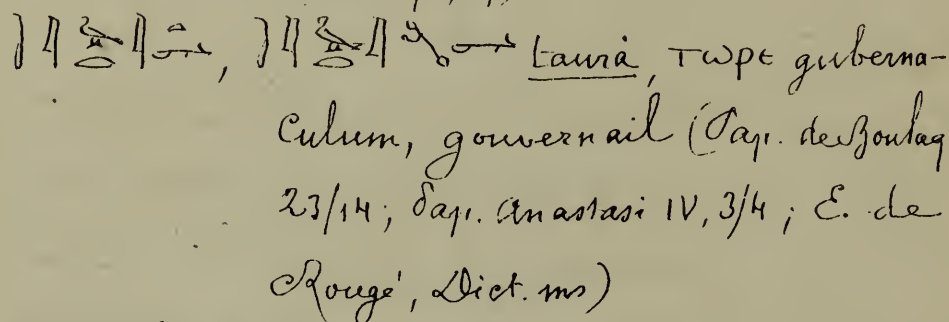 taurȧ, ⲧⲱⲣⲉ guberna-
culum, gouvernail (Pap. de Boulaq
23/14; Pap. Anastasi IV, 3/4; E. de
Rougé, Dict. ms)